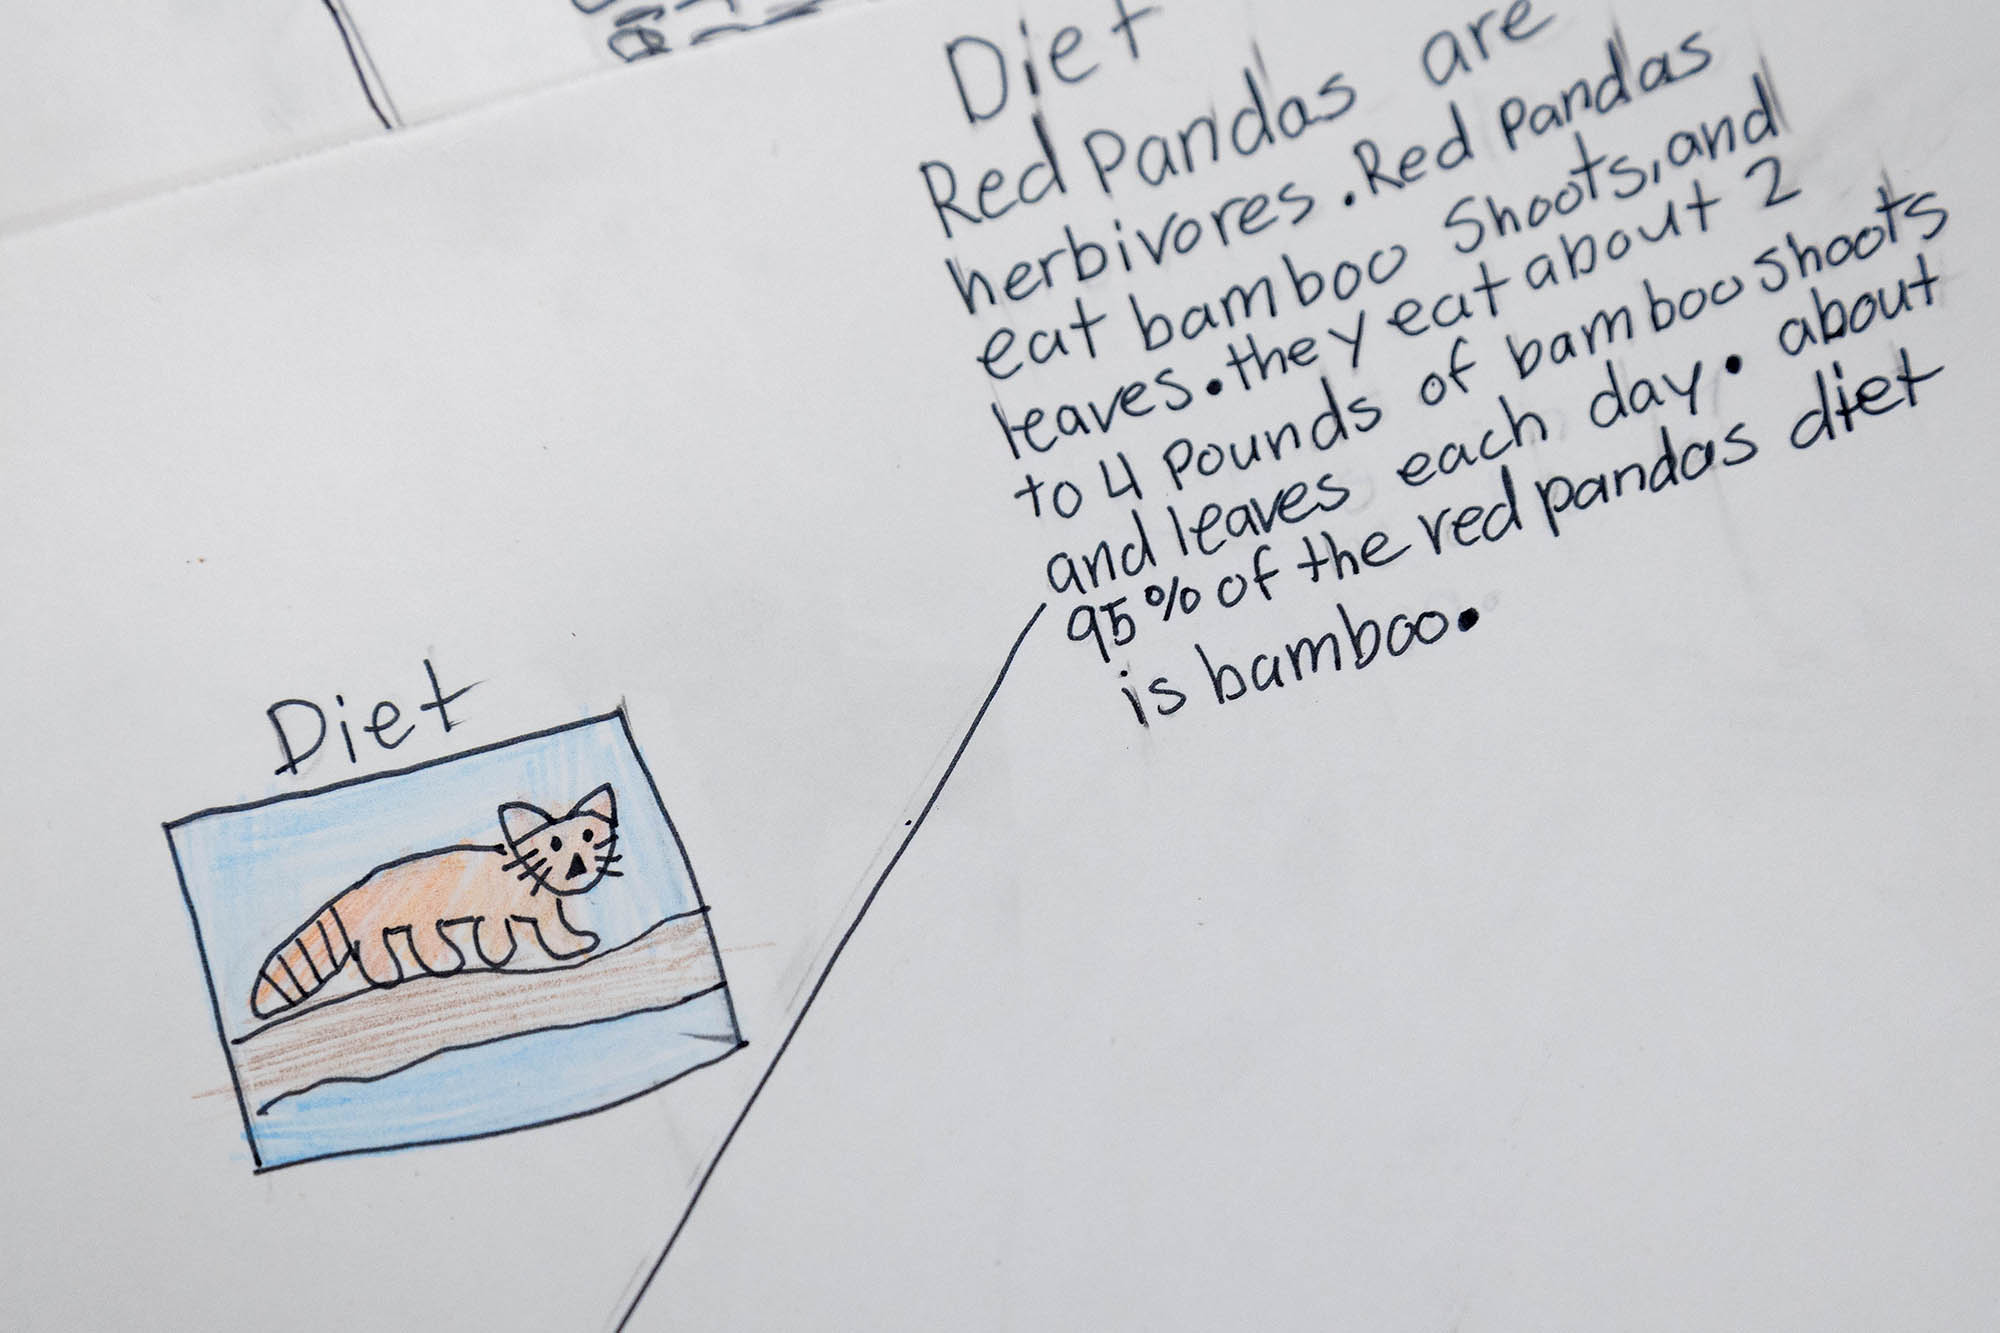 Diet
Red Pandas are
herbivores. Red Pandas
eat bamboo Shoots, and
leaves. they eat about 2
to 4 pounds of bamboo shoots
and leaves each day. about
95% of the red pandas diet
is bamboo.
Diet